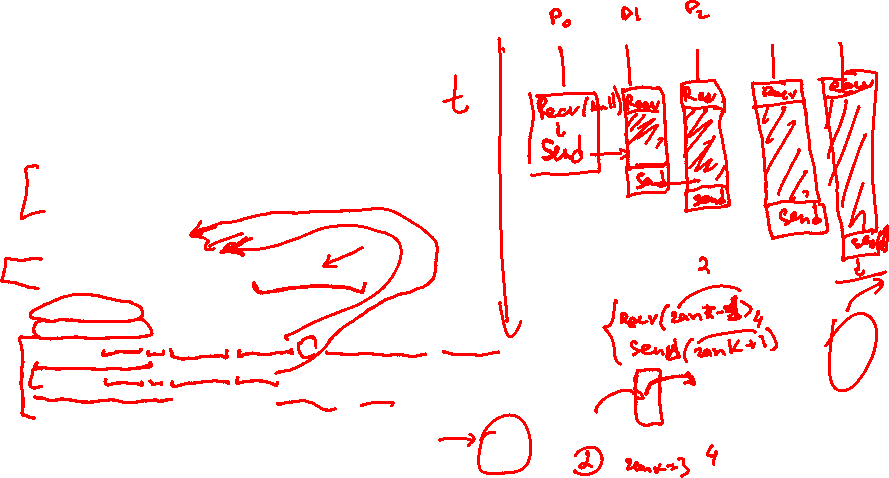 P0 P1 P2
t
Recv(null) Recv Recv Recv Recv
Send
Send Send Send Send
2
Recv(rank-1) 4
Send(rank+1)
2 rank=3 4